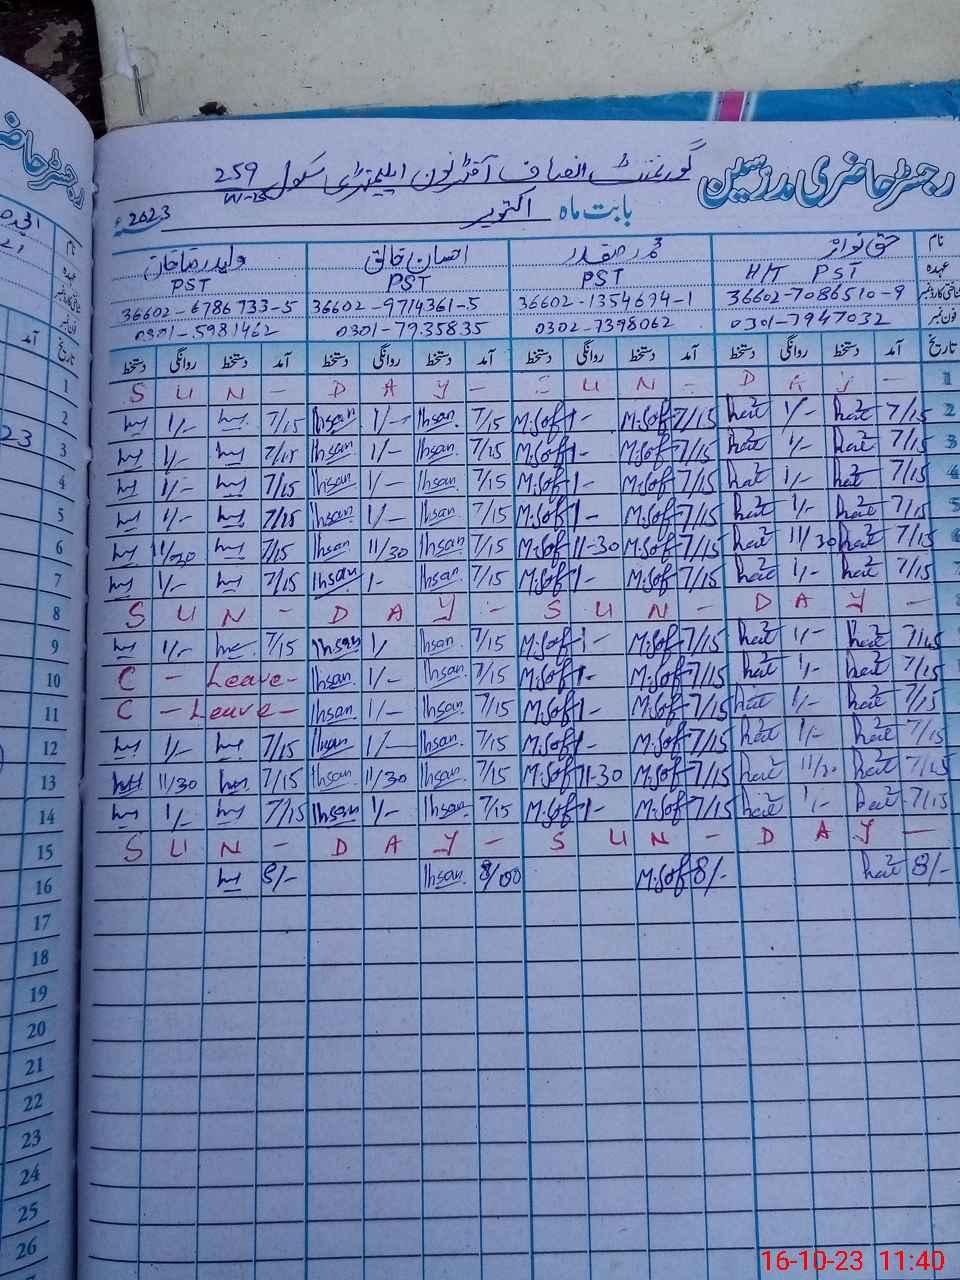 رجسٹر حاضری مدرسین گورنمنٹ انصاف آفٹر نون ایلیمنٹری سکول 259
W-B
بابت ماہ اکتوبر 2023ء
نام حق نواز محمد صفدر احسان خالق ولید رضا خان
عہدہ H/T PST PST PST PST
36602-7086510-9 36602-1354694-1 36602-9714361-5 36602-6786733-5
فون نمبر 0301-7947032 0302-7398062 0301-7935835 0301-5981462
تاریخ آمد دستخط روانگی دستخط آمد دستخط روانگی دستخط آمد دستخط روانگی دستخط آمد دستخط روانگی دستخط
1 S U N - D A Y - S U N - D A Y -
2 1/- 7/15 Ihsan 1/- Ihsan 7/15 M.Sof 1- M.Sof 7/15 1/- 7/15
3 1/- 7/15 Ihsan 1/- Ihsan 7/15 M.Sof 1- M.Sof 7/15 1/- 7/15
4 1/- 7/15 Ihsan 1/- Ihsan 7/15 M.Sof 1- M.Sof 7/15 1/- 7/15
5 1/- 7/15 Ihsan 1/- Ihsan 7/15 M.Sof 1- M.Sof 7/15 1/- 7/15
6 11/30 7/15 Ihsan 11/30 Ihsan 7/15 M.Sof 11-30 M.Sof 7/15 11/30 7/15
7 1/- 7/15 Ihsan 1- Ihsan 7/15 M.Sof 1- M.Sof 7/15 1/- 7/15
8 S U N - D A Y - S U N - D A Y -
9 1/- 7/15 Ihsan 1/ Ihsan 7/15 M.Sof 1- M.Sof 7/15 1/- 7/15
10 C - Leave - Ihsan 1/- Ihsan 7/15 M.Sof 1- M.Sof 7/15 1/- 7/15
11 C - Leave - Ihsan 1/- Ihsan 7/15 M.Sof 1- M.Sof 7/15 1/- 7/15
12 1/- 7/15 Ihsan 1/- Ihsan 7/15 M.Sof 1- M.Sof 7/15 1/- 7/15
13 11/30 7/15 Ihsan 11/30 Ihsan 7/15 M.Sof 11-30 M.Sof 7/15 11/30 7/15
14 1/- 7/15 Ihsan 1/- Ihsan 7/15 M.Sof 1- M.Sof 7/15 1/- 7/15
15 S U N - D A Y - S U N - D A Y -
16 8/- Ihsan 8/00 M.Sof 8/- 8/-
17
18
19
20
21
22
23
24
25
26
16-10-23 11:40